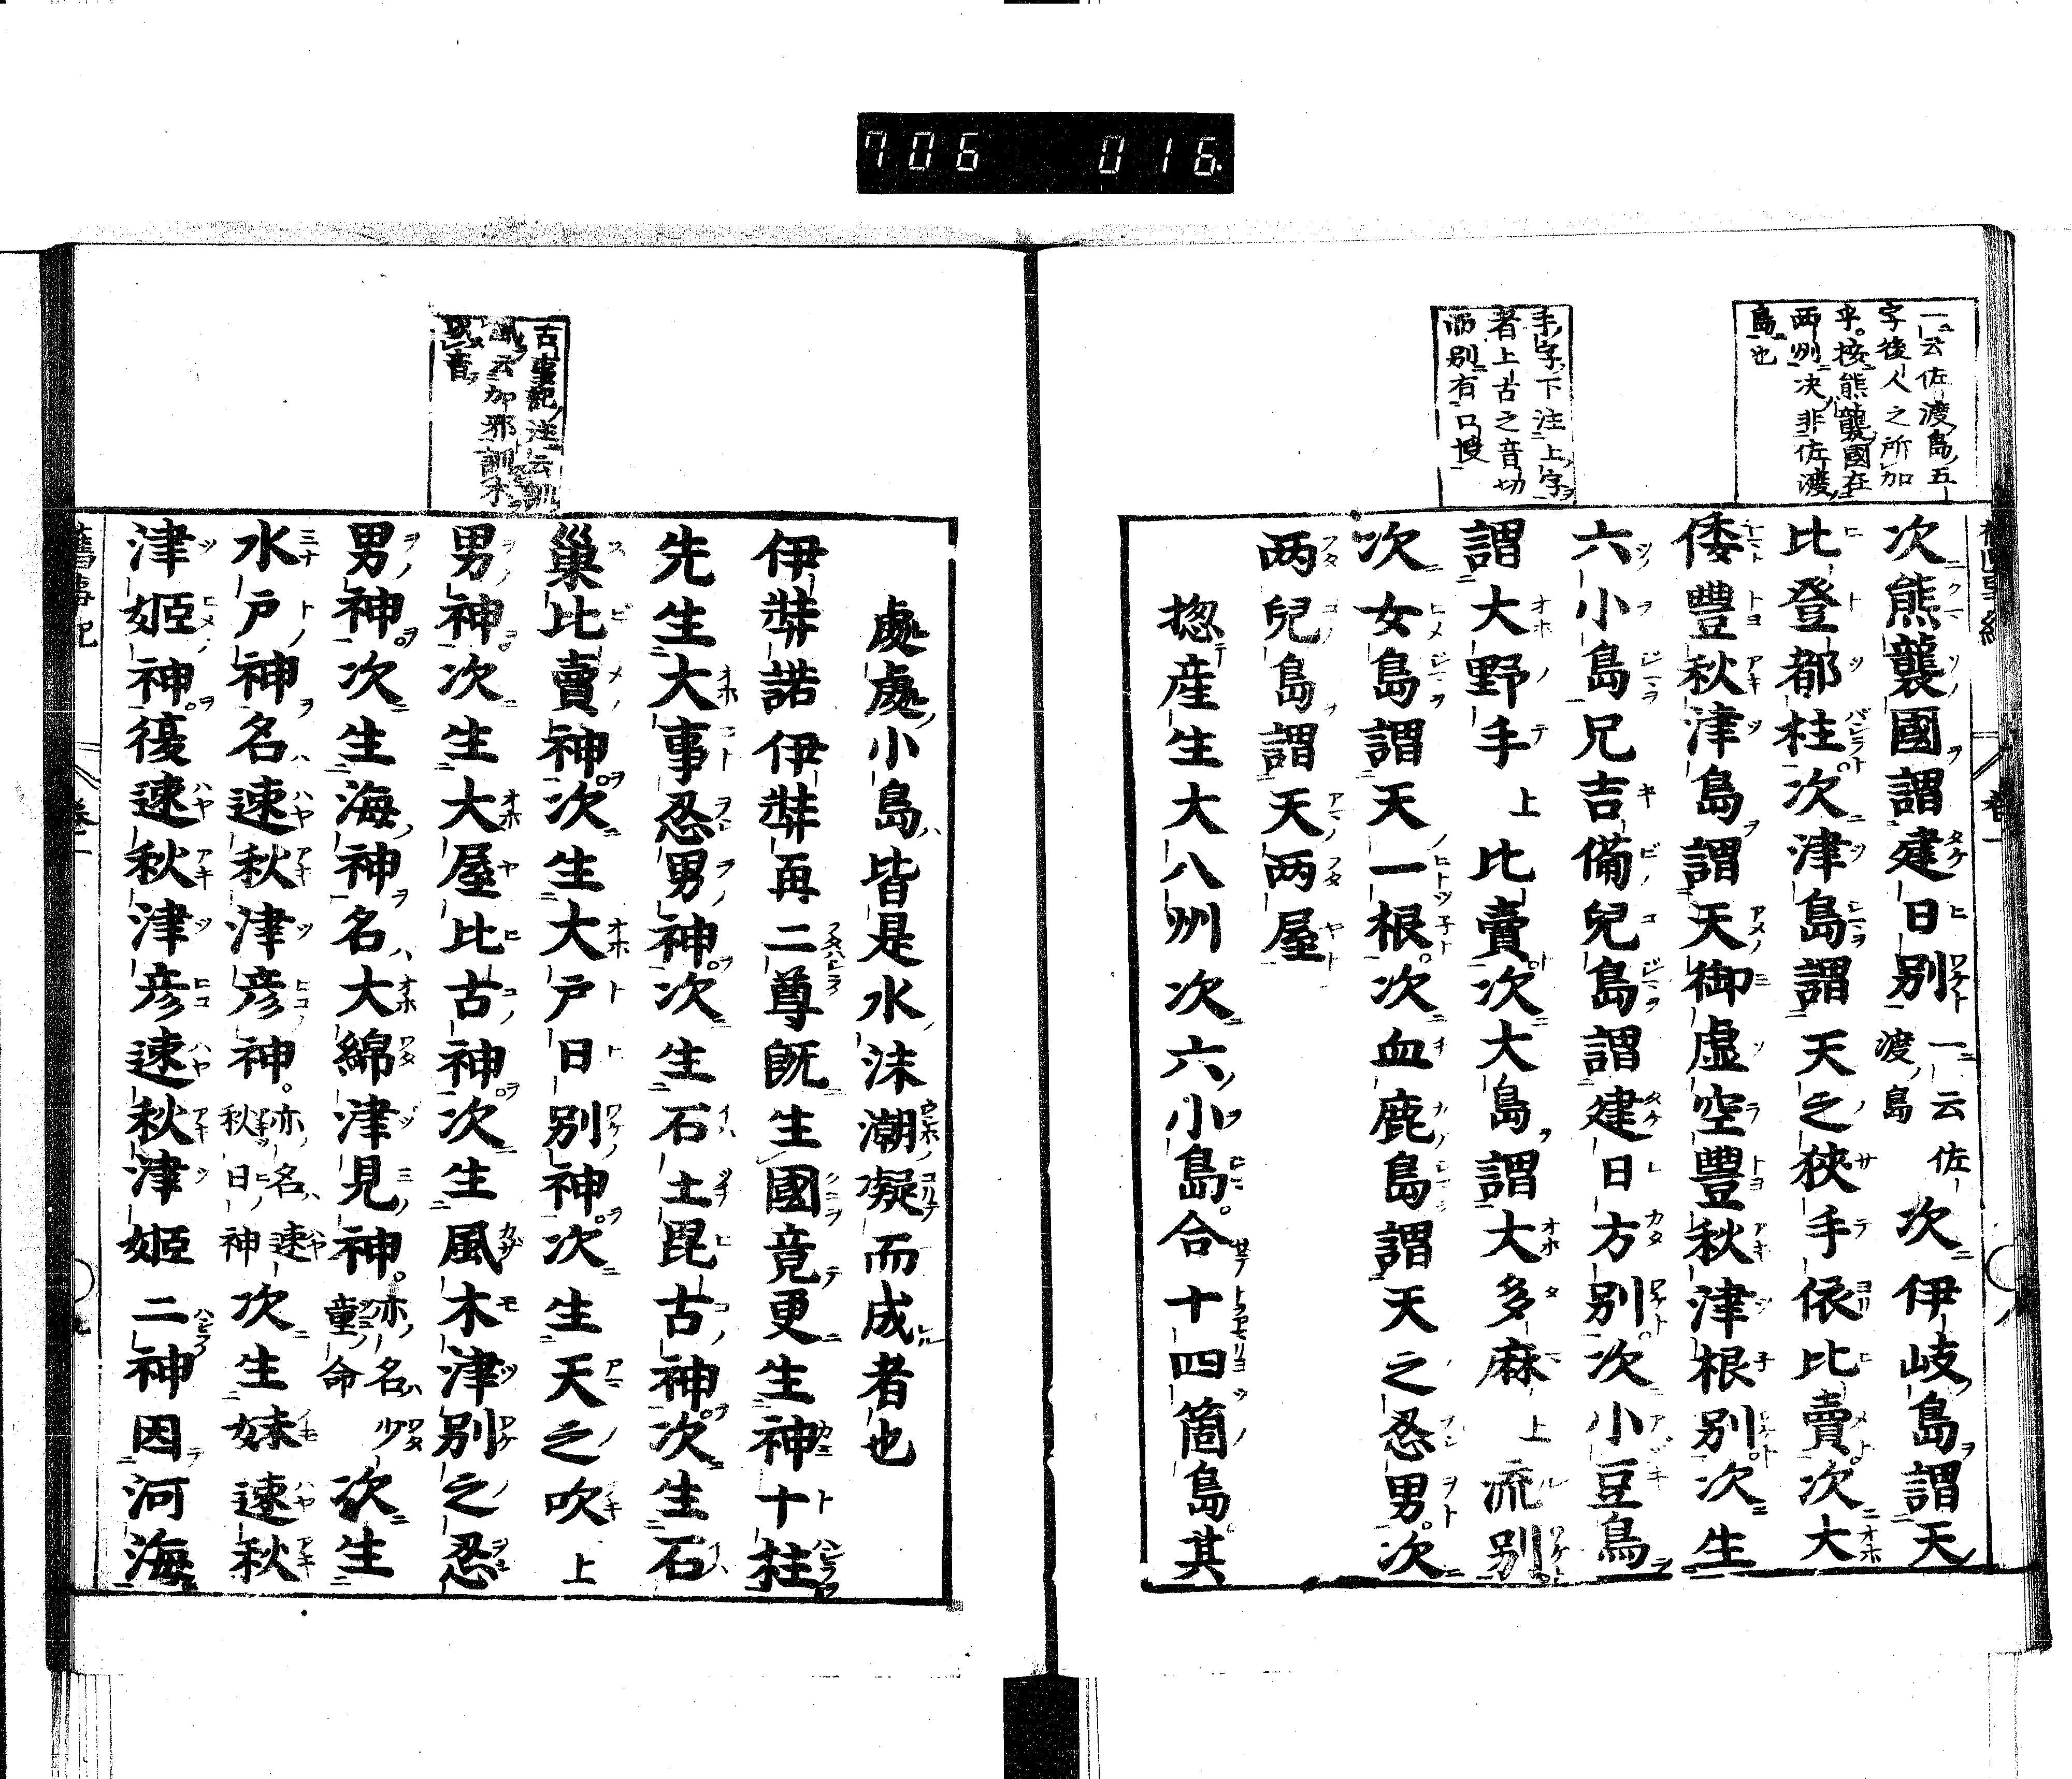 706 016
一云佐渡島五
字後人之所加
乎按熊襲國在
西州决非佐渡
島也
手字下注上字
著上古之音切
而别有口授
次熊襲國謂建日别一云佐渡島次伊岐島謂天
比登都柱次津島謂天之狹手依比賣次大
倭豐秋津島謂天御虚空豐秋津根别次生
六小島兄吉備兒島謂建日方别次小豆島
謂大野手上比賣次大島謂大多麻上流别
次女島謂天一根次血鹿島謂天之忍男次
两兒島謂天两屋
揔産生大八州次六小島合十四箇島其
處處小島皆是水沫潮凝而成者也
伊弉諾伊弉再二尊既生國竟更生神十柱
先生大事忍男神次生石土毘古神次生石
巢比賣神次生大戸日别神次生天之吹上
男神次生大屋比古神次生風木津别之忍
男神次生海神名大綿津見神亦名少童命次生
水戸神名速秋津彦神亦名速秋日神次生妹速秋
津姬神復速秋津彦速秋津姬二神因河海
古事記注云訓
風云加邪訓木
舊事記 卷一